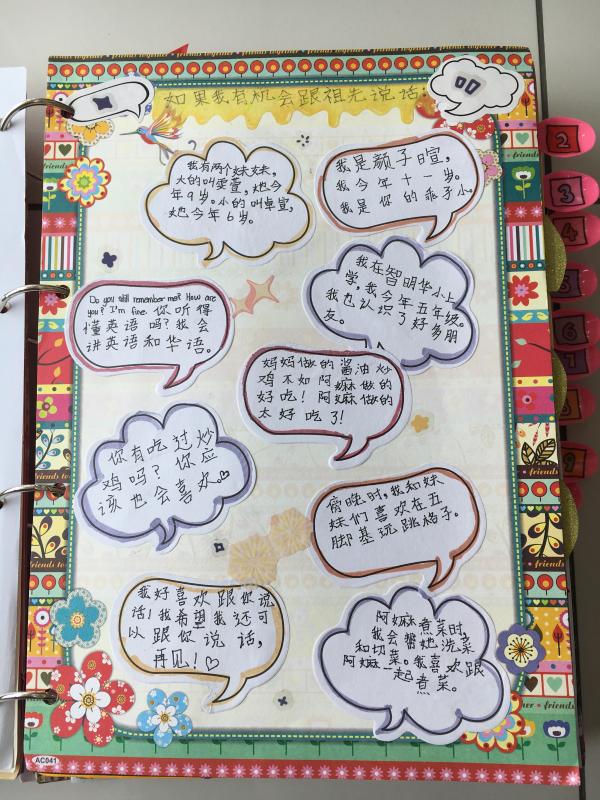 如果我有机会跟祖先说话:
我有两个妹妹,
大的叫雯萱,她今
年9岁。小的叫卓萱,
她今年6岁。
我是颜子暄,
我今年十一岁。
我是你的乖子小。
Do you still remember me? How are
you? I'm fine. 你听得
懂英语吗?我会
讲英语和华语。
我在智明华小上
学,我今年五年级。
我也认识了好多朋
友。
妈妈做的酱油炒
鸡不如阿嫲做的
好吃!阿嫲做的
太好吃了!
你有吃过炒
鸡吗?你应
该也会喜欢。
傍晚时,我和妹
妹们喜欢在五
脚基玩跳格子。
我好喜欢跟你说
话!我希望我还可
以跟你说话,
再见!
阿嫲煮菜时
我会帮她洗菜
和切菜。我喜欢跟
阿嫲一起煮菜。
AC041
2
3
4
5
6
7
8
9